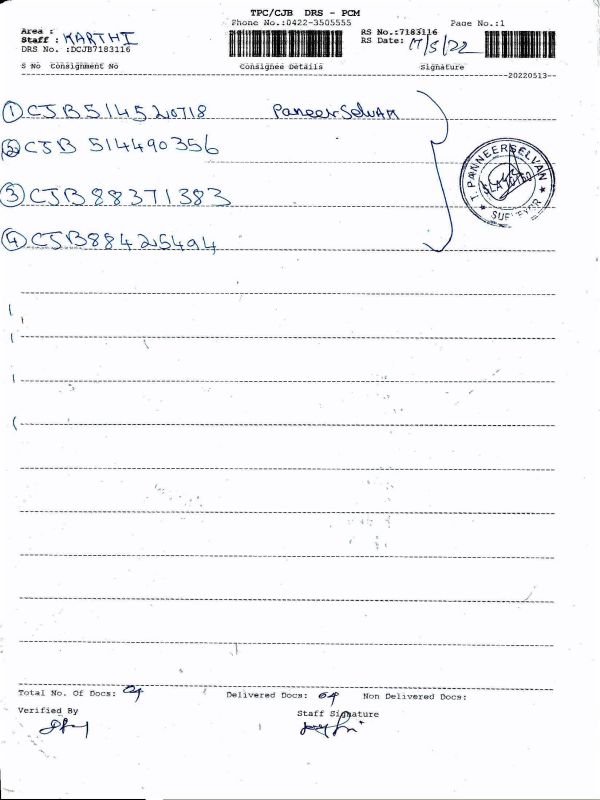 TPC/CJB DRS - PCM
Phone No.:0422-3505555 Page No.:1
Area :
Staff : KARTHI
DRS No. :DCJB7183116
RS No.:7183116
RS Date: 17/5/22
S No Consignment No Consignee Details Signature
20220513
1 CJB514520718 PaneerSelvAM
2 CJB 514490356
3 CJB88371383
4 CJB88425494
T. PANNEERSELVAN
SURVEYOR
Total No. Of Docs: 04 Delivered Docs: 04 Non Delivered Docs:
Verified By Staff Signature